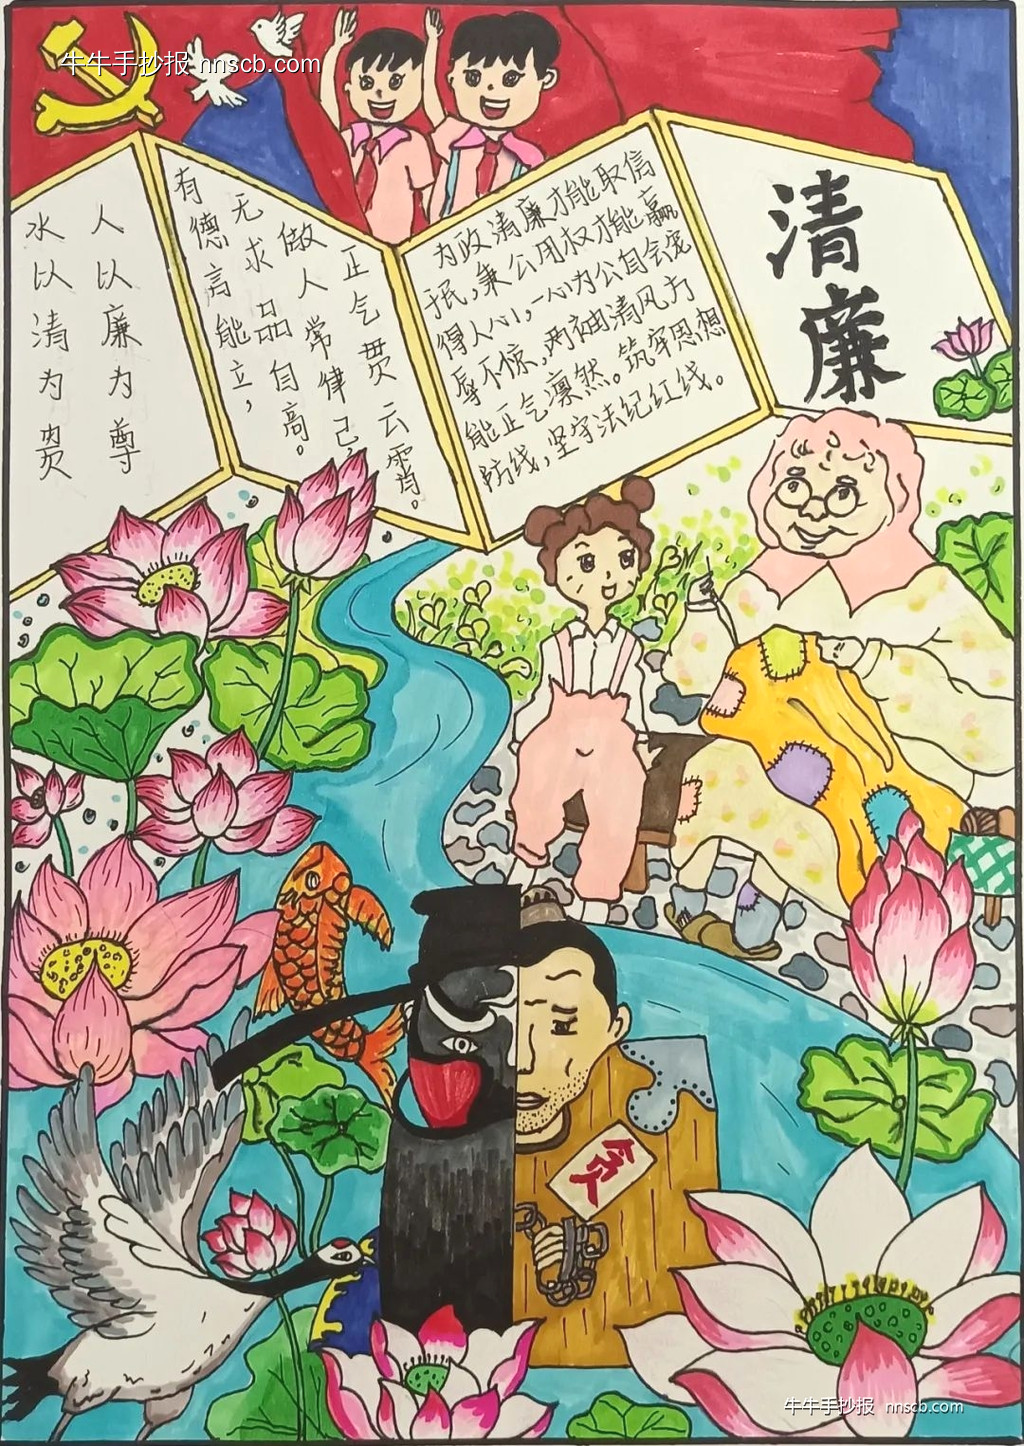 牛牛手抄报 nnscb.com
水以清为贵
人以廉为尊
有德言能立，
无求品自高。
做人常律己，
正气贯云霄。
为政清廉才能取信
于民，秉公用权才能赢
得人心，一心为公自会宠
辱不惊，两袖清风方
能正气凛然。筑牢思想
防线，坚守法纪红线。
清
廉
贪
牛牛手抄报 nnscb.com